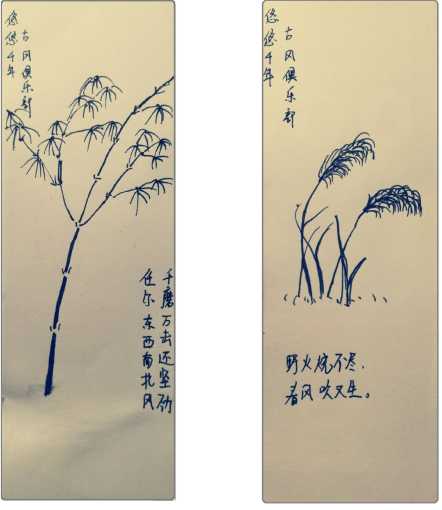 悠悠千年
古风俱乐部
千磨万击还坚劲
任尔东西南北风
悠悠千年
古风俱乐部
野火烧不尽，
春风吹又生。